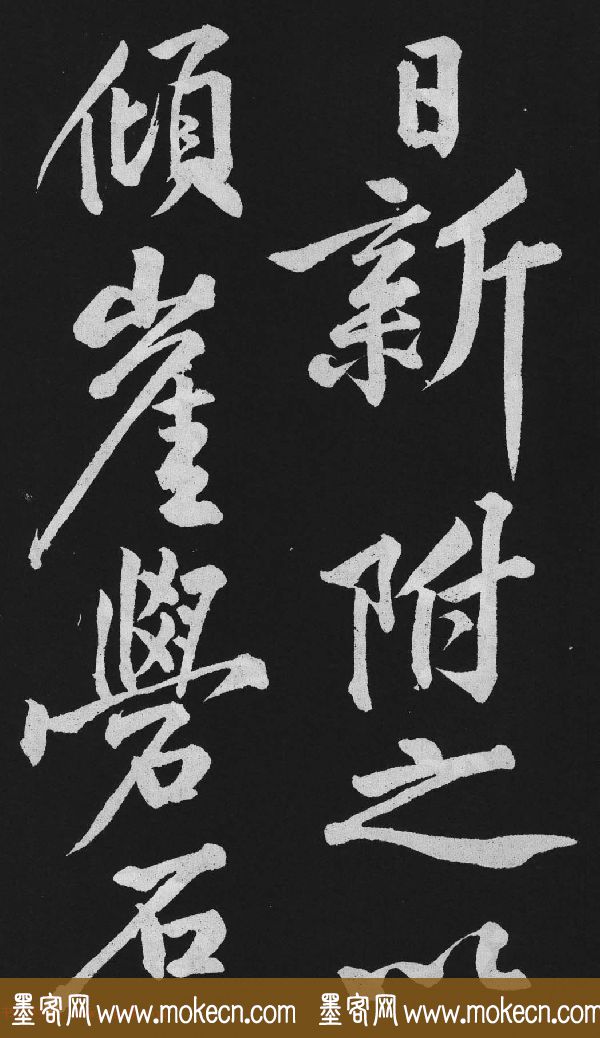 日新附之以
傾崖礐石
墨客网 www.mokecn.com 墨客网 www.mokecn.com